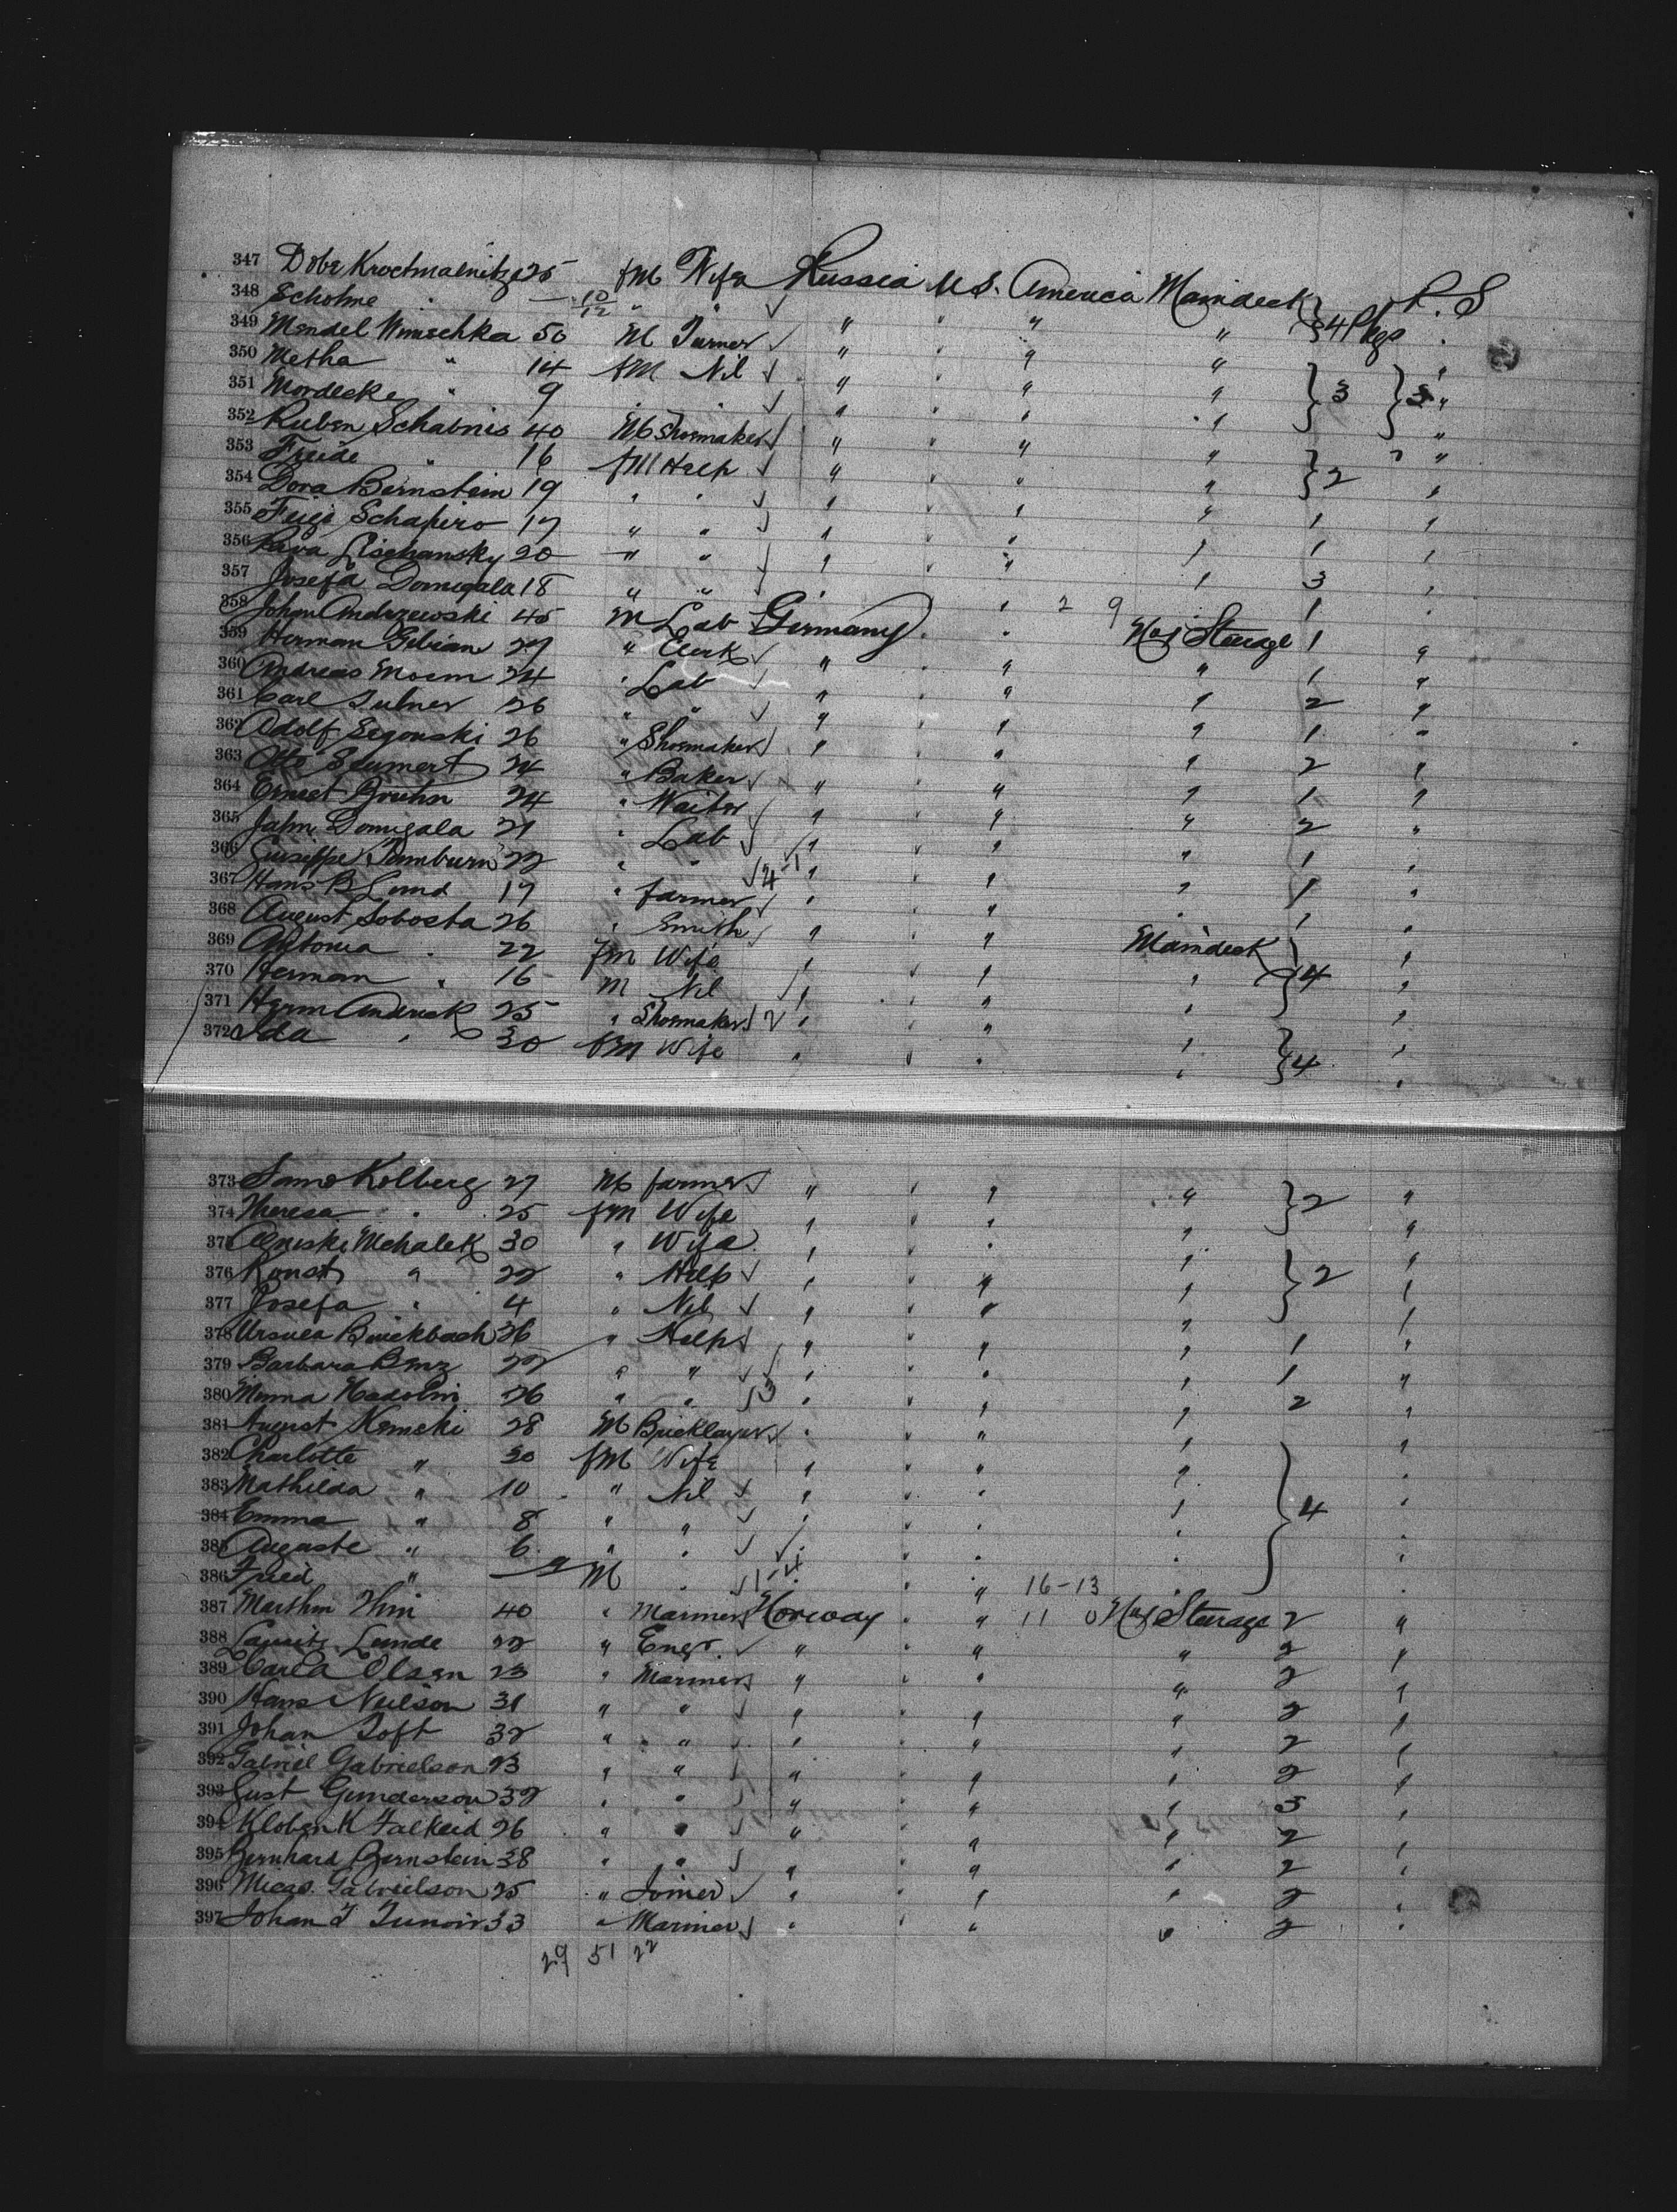 347 Dobe Kroctmalnitz 25 fM Wife Russia U.S. America Maindeck } 4 Pkgs P. S
348 Scholme " — 10/12 " " " " " "
349 Mendel Wimischka 50 M Turner " " " "
350 Metha " 14 fM Nil " " " " } 3 "
351 Mordecke " 9 " " " " " "
352 Ruben Schabnis 40 M Shoemaker " " " " "
353 Freide " 16 fM Help " " " " } 2 "
354 Dora Bernstein 19 " " " " " " 1 "
355 Feige Schapiro 17 " " " " " " 1 "
356 Riva Lischansky 20 " " " " " " 3 "
357 Josefa Domigala 18 " " " 2 9 1 "
358 Johan Andrzewski 45 M Lab Germany " " Maj Steerage 1 "
359 Herman Gebian 27 " Clerk " " " " 1 "
360 Andreas Mosm 24 " Lab " " " " 2 "
361 Carl Sulner 26 " " " " " " 1 "
362 Adolf Segonski 26 " Shoemaker " " " " 2 "
363 Otto Seumert 24 " Baker " " " " 1 "
364 Ernest Gruhn 24 " Waiter " " " " 2 "
365 Jahn Domigala 21 " Lab " " " " 1 "
366 Guiseppe Tamburn 22 " " 4-1 " " " " 1 "
367 Hans B Lund 17 " farmer " " " " 1 "
368 August Sobosta 26 " Smith " " " Maindeck } 4 "
369 Antonia " 22 fM Wife " " " " "
370 Herman " 16 M Nil " " " " "
371 Herm Andrick 25 " Shoemaker 2 " " " " } 4 "
372 Ida " 30 fM Wife " " " " "
373 Samo Kolberg 27 M farmer " " " " } 2 "
374 Theresa " 25 fM Wife " " " " "
375 Mehalek 30 " Wife " " " " } 2 "
376 Konst " 22 " Help " " " " "
377 Josefa " 4 " Nil " " " " "
378 Ursula Buickbach 36 " Help " " " " 1 "
379 Barbara Benz 22 " " " " " " 1 "
380 Minna Hadolin 26 " " 3 " " " " 2 "
381 August Kemski 28 M Bricklayer " " " " } 4 "
382 Charlotte " 30 fM Wife " " " " "
383 Mathilda " 10 " Nil " " " " "
384 Emma " 8 " " " " " " "
385 Auguste " 6 " " " " " " "
386 Fried " — M " 1-4 " " " 16-13 " "
387 Marthin 40 " Mariner Norway " " 11 0 Maj Steerage 2 "
388 Lauritz Lunde 22 " Engr. " " " " 2 "
389 Carl A Olsen 23 " Mariner " " " " 2 "
390 Hans Neilson 31 " " " " " " 2 "
391 Johan Toft 32 " " " " " " 2 "
392 Gabriel Gabrielson 23 " " " " " " 2 "
393 Gust Gunderson 32 " " " " " " 3 "
394 Kloben K Falkeid 26 " " " " " " 2 "
395 Bernhard Bernstein 38 " " " " " " 2 "
396 Gabrielson 25 " Joiner " " " " 2 "
397 Johan T Tunoir 33 " Mariner " " " " 2 "
29 51 22